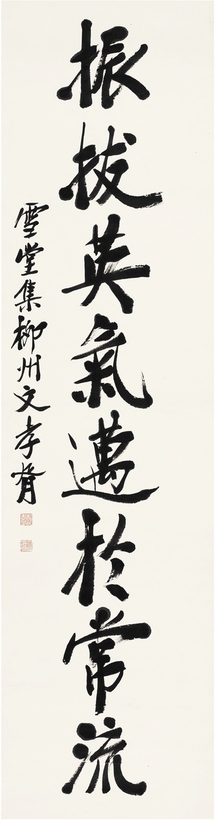 振拔英氣邁於常流
雪堂集柳州文孝胥